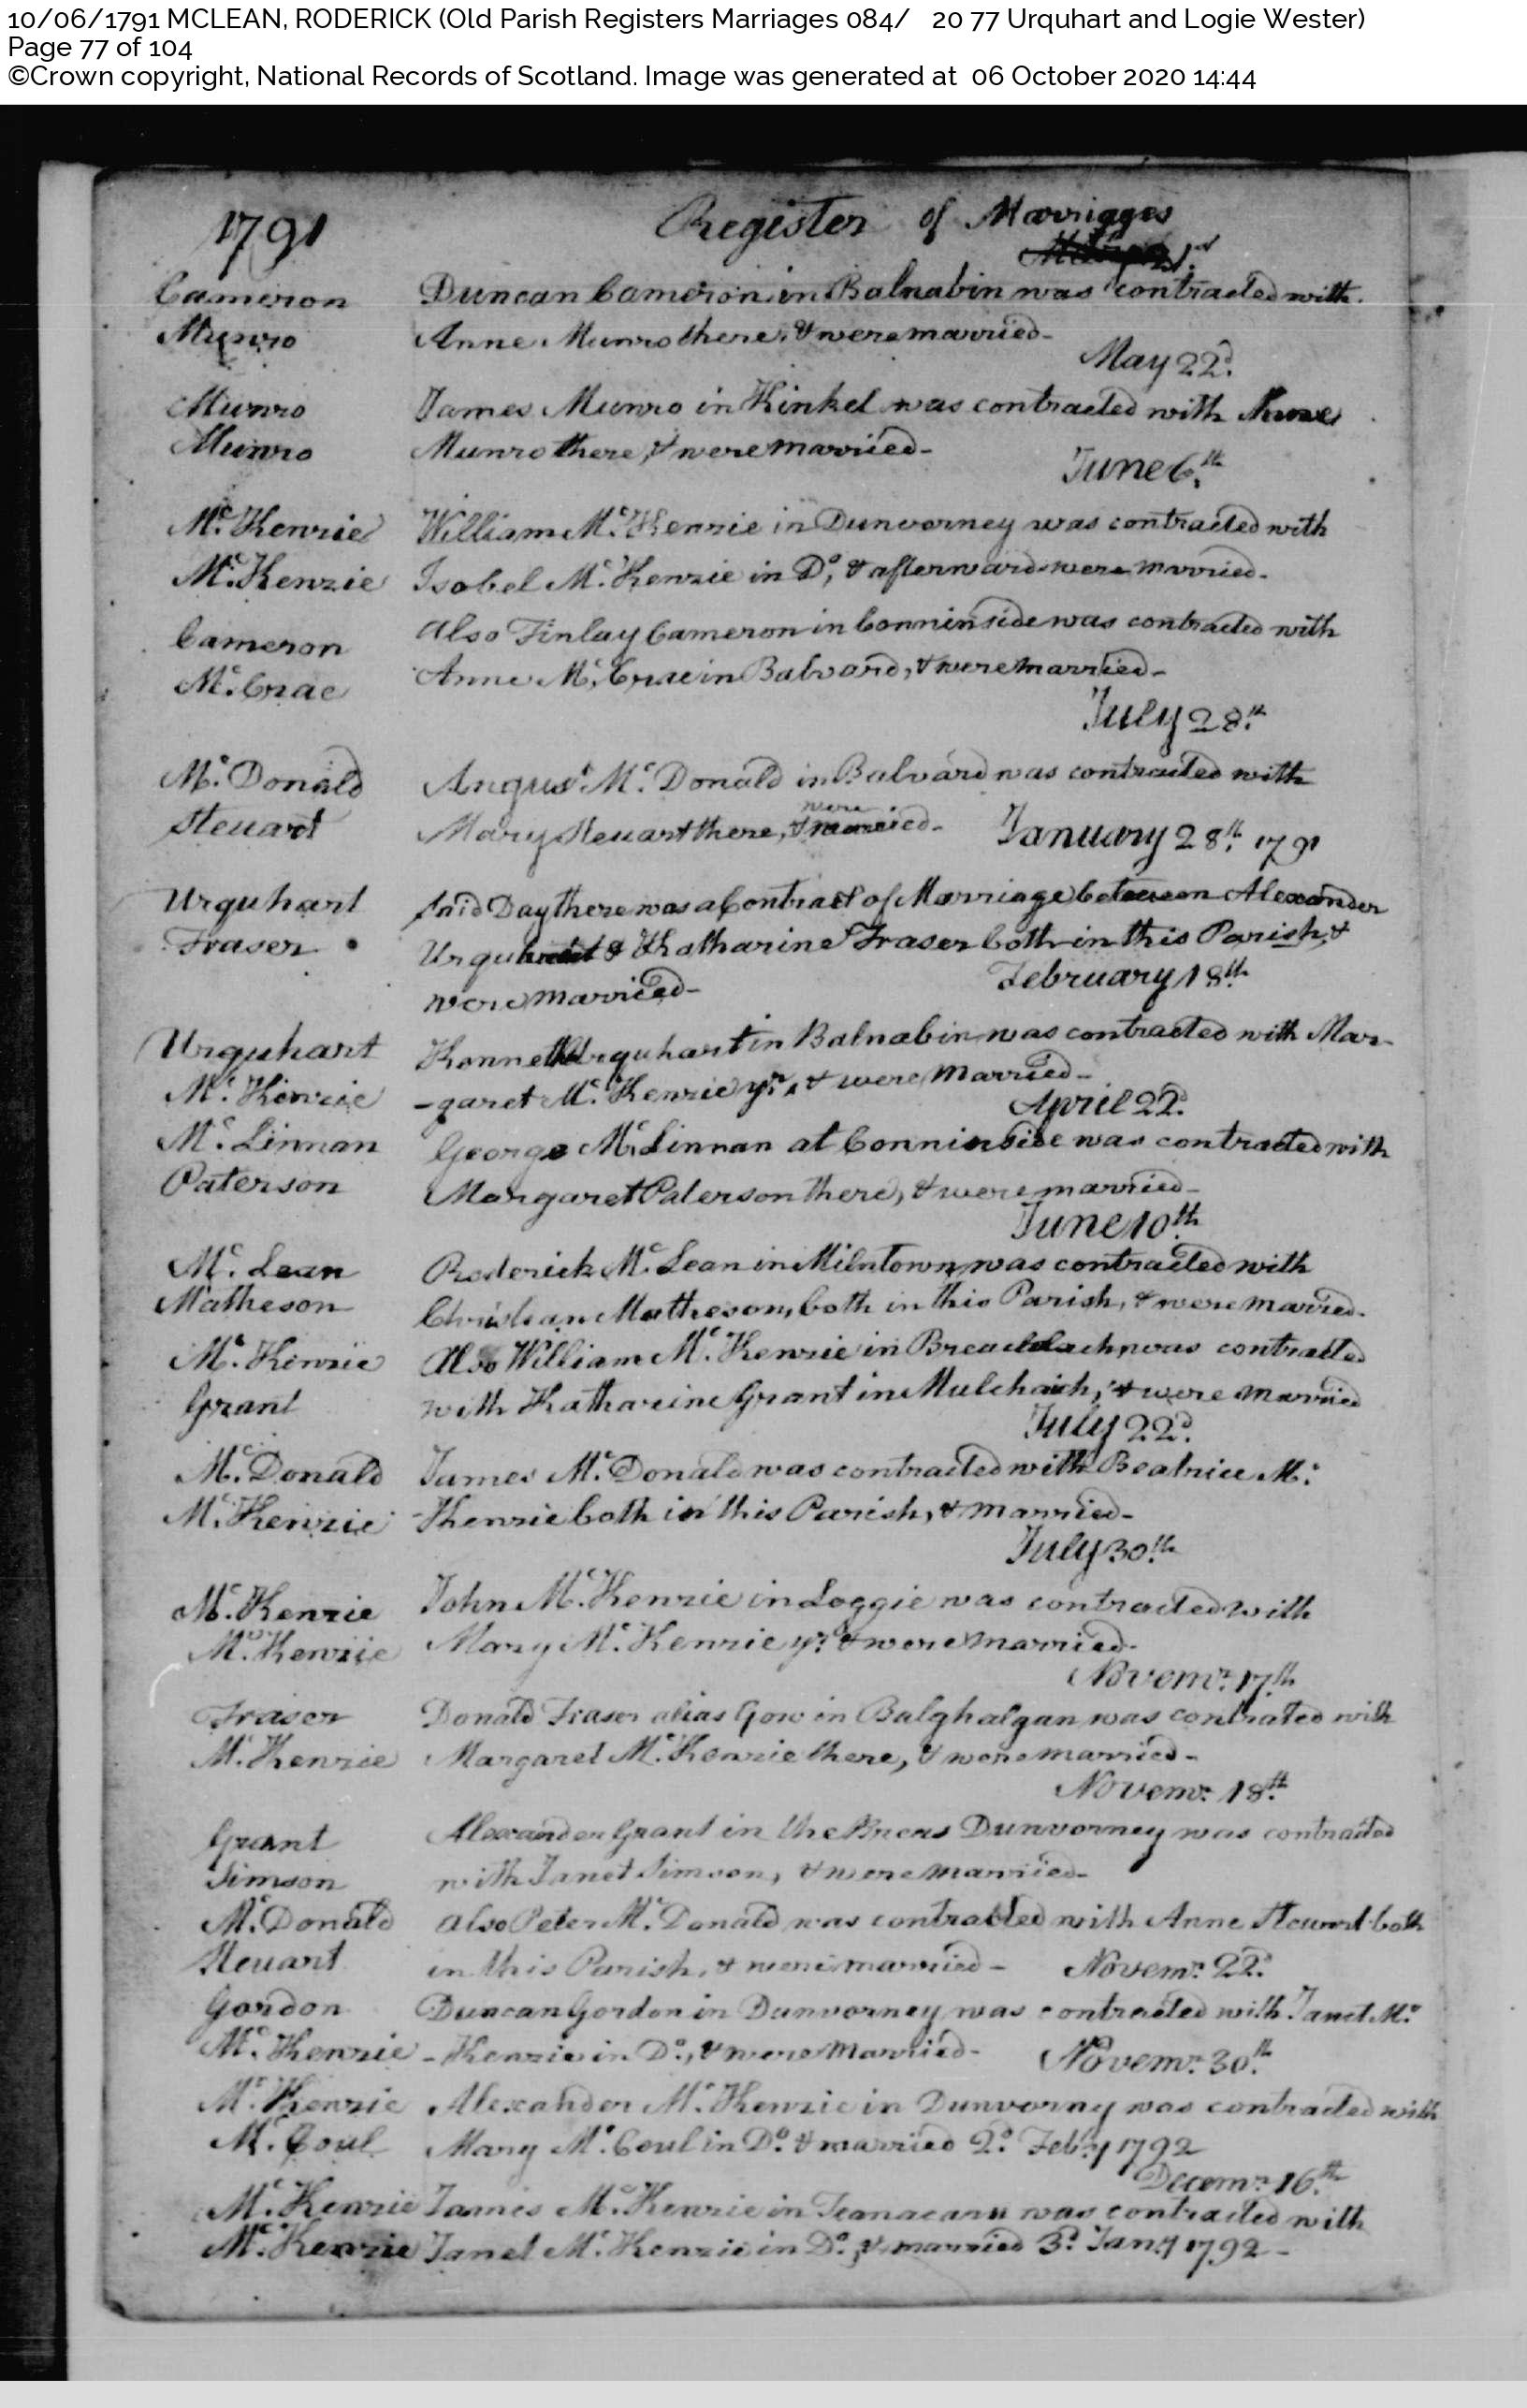 10/06/1791 MCLEAN, RODERICK (Old Parish Registers Marriages 084/ 20 77 Urquhart and Logie Wester)
Page 77 of 104
©Crown copyright, National Records of Scotland. Image was generated at 06 October 2020 14:44
1791 Register of Marriages
Cameron Duncan Cameron in Balnabin was contracted with
Munro Anne Munro there, & were married-
May 22d.
Munro James Munro in Kinkel was contracted with
Munro Munro there, & were married-
June 6th
Mc.Kenzie William Mc.Kenzie in Dunvorney was contracted with
Mc.Kenzie Isobel Mc.Kenzie in Do, & afterward were married-
Cameron Also Finlay Cameron in Conninside was contracted with
Mc.Crae Anne Mc.Crae in Balvard, & were married-
July 28th
Mc.Donald Angus Mc.Donald in Balvard was contracted with
Steuart Mary Steuart there, & were married- January 28th 1791
Urquhart Said Day there was a Contract of Marriage between Alexander
Fraser Urquhart & Katharine Fraser both in this Parish, &
were married- February 18th
Urquhart Kenneth Urquhart in Balnabin was contracted with Mar-
Mc.Kenzie -garet Mc.Kenzie yr. & were married-
April 22d.
Mc.Linnan George Mc.Linnan at Conninside was contracted with
Paterson Margaret Paterson there, & were married-
June 10th
Mc.Lean Roderick Mc.Lean in Milntown was contracted with
Matheson Christian Matheson, both in this Parish, & were married.
Mc.Kenzie Also William Mc.Kenzie in was contracted
Grant with Katharine Grant in Mulchaich, & were married
July 22d.
Mc.Donald James Mc.Donald was contracted with Beatrice Mc.
Mc.Kenzie -Kenzie both in this Parish, & married-
July 30th
Mc.Kenzie John Mc.Kenzie in Loggie was contracted with
Mc.Kenzie Mary Mc.Kenzie yr. & were married-
Novemr. 17th
Fraser Donald Fraser alias Gow in Balghalgan was contrated with
Mc.Kenzie Margaret Mc.Kenzie there, & were married-
Novemr. 18th
Grant Alexander Grant in the Breas Dunvorney was contracted
Simson with Janet Simson, & were married-
Mc.Donald also Peter Mc.Donald was contracted with Anne Steuart both
Steuart in this Parish, & were married- Novemr. 22d.
Gordon Duncan Gordon in Dunvorney was contracted with Janet Mc.
Mc.Kenzie -Kenzie in Do., & were married- Novemr. 30th
Mc.Kenzie Alexander Mc.Kenzie in Dunvorny was contracted with
Mc.Coul Mary Mc.Coul in Do. & married 2d. Feby 1792
Decemr. 16th
Mc.Kenzie James Mc.Kenzie in was contracted with
Mc.Kenzie Janet Mc.Kenzie in Do., & married 3d. Jany 1792-